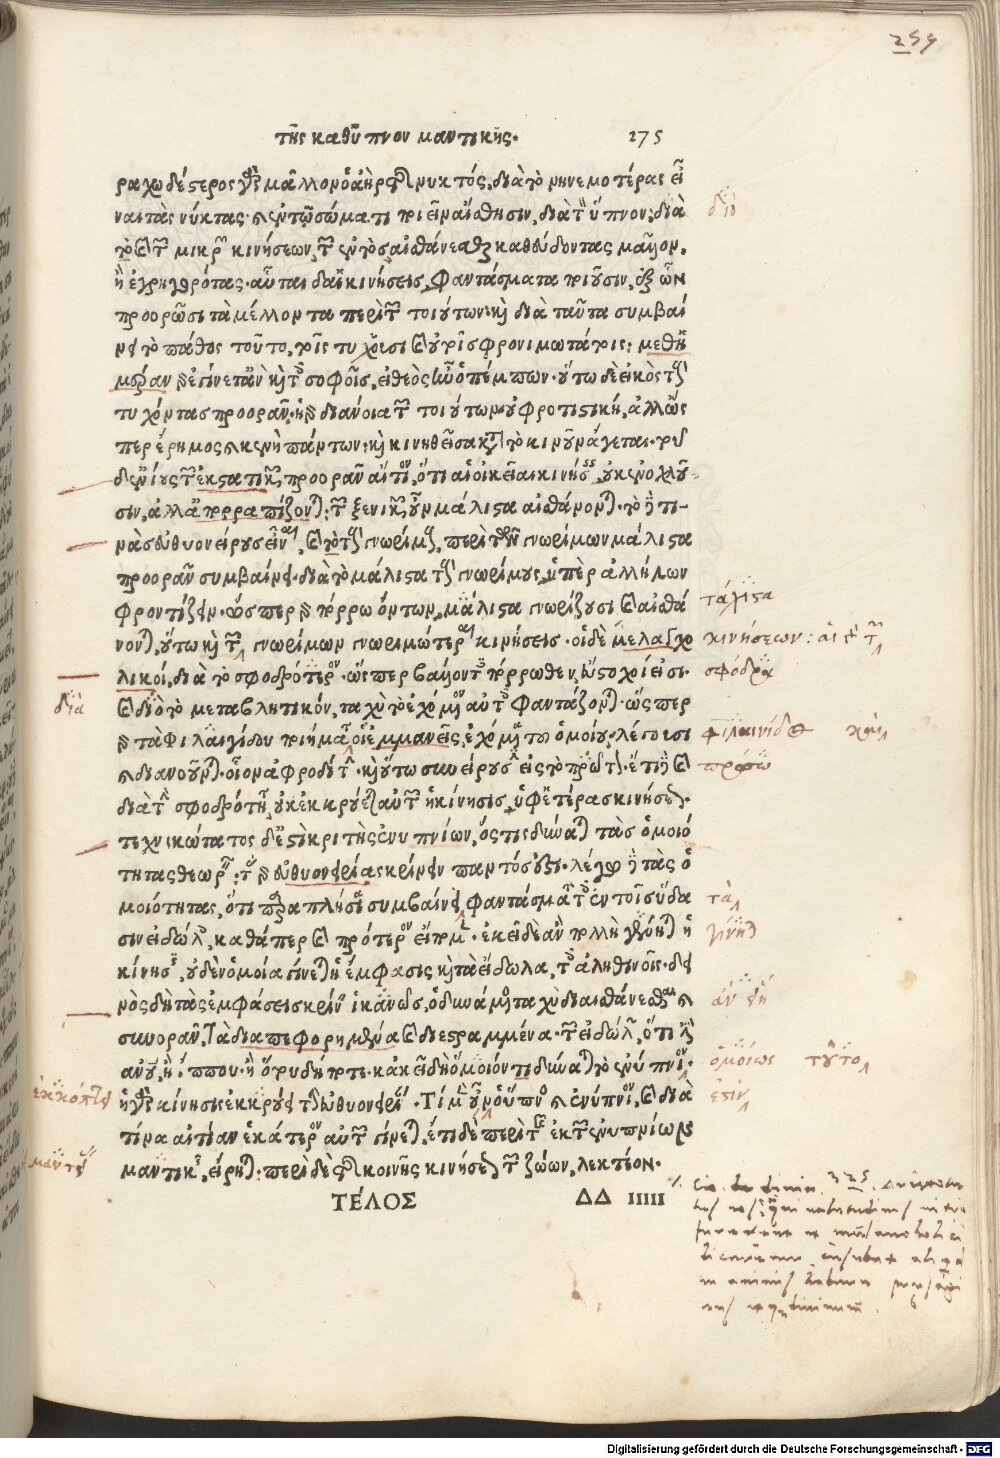 259
τῆς καθ' ὕπνου μαντικῆς. 275
ραχωδέστερος γὰρ μᾶλλον ὁ ἀὴρ τῆς νυκτός, διὰ τὸ νηνεμοτέρας εἶ
ναι τὰς νύκτας. καὶ ἐν τῷ σώματι ποιεῖν αἴσθησιν, διὰ τὸν ὕπνον; διὰ
τὸ καὶ τῶν μικρῶν κινήσεων, τῶν ἐντὸς αἰσθάνεσθαι καθεύδοντας μᾶλλον,
ἢ ἐγρηγορότας. αὗται δὲ αἱ κινήσεις, φαντάσματα ποιοῦσιν, ἐξ ὧν
προορῶσι τὰ μέλλοντα περὶ τῶν τοιούτων· καὶ διὰ ταῦτα συμβαί
νει τὸ πάθος τοῦτο, τοῖς τυχοῦσι καὶ οὐ τοῖς φρονιμωτάτοις· μεθ' ἡ
μέραν τε ἐγίνετ' ἂν καὶ τοῖς σοφοῖς, εἰ θεὸς ἦν ὁ πέμπων. οὕτω δὲ εἰκὸς τοὺς
τυχόντας προορᾶν. ἡ γὰρ διάνοια τῶν τοιούτων οὐ φροντιστική, ἀλλ' ὥσ
περ ἔρημος καὶ κενὴ πάντων· καὶ κινηθεῖσα κατὰ τὸ κινοῦν ἄγεται. τοῦ
δ' ἐνίους τῶν ἐκστατικῶν, προορᾶν αἴτιον, ὅτι αἱ οἰκεῖαι κινήσεις, οὐκ ἐνοχλοῦ-
σιν, ἀλλὰ παρραπίζονται· τῶν ξενικῶν οὖν μάλιστα αἰσθάνονται. τὸ δὲ τι-
νὰς εὐθυονείρους εἶναι, καὶ τὸ τοὺς γνωρίμους, περὶ τῶν γνωρίμων μάλιστα
προορᾶν συμβαίνει. διὰ τὸ μάλιστα τοὺς γνωρίμους, ὑπὲρ ἀλλήλων
φροντίζειν. ὥσπερ γὰρ πόρρω ὄντων, μάλιστα γνωρίζουσι καὶ αἰσθά
νονται, οὕτω καὶ τῶν γνωρίμων γνωριμώτεραι κινήσεις. οἱ δὲ μελαγχο
λικοί, διὰ τὸ σφοδρότερον. ὥσπερ βάλλοντες πόρρωθεν, εὔστοχοί εἰσι.
καὶ διὸ τὸ μεταβλητικόν, ταχὺ τὸ ἐχόμενον αὐτοῖς φαντάζονται. ὥσπερ
γὰρ τὰ Φιλαιγίδου ποιήματα οἱ ἐμμανεῖς, ἐχόμενα τοῦ ὁμοίου, λέγουσι
καὶ διανοοῦνται. οἷον ἀφροδίτην. καὶ οὕτω συνείρουσιν εἰς τὸ πρόσω. ἔτι δὲ καὶ
διὰ τὴν σφοδρότητα, οὐκ ἐκκρούεται αὐτῶν ἡ κίνησις, ὑφ' ἑτέρας κινήσεως.
τεχνικώτατος δ' ἐστὶ κριτὴς ἐνυπνίων, ὅστις δύναται τὰς ὁμοιό
τητας θεωρεῖν· τὰς γὰρ εὐθυονειρίας κρίνειν παντός ἐστι. λέγω δὲ τὰς ὁ
μοιότητας, ὅτι παραπλήσια συμβαίνει, φαντάσματα τοῖς ἐν τοῖς ὕδα
σιν εἰδώλοις, καθάπερ καὶ πρότερον εἴπομεν. ἐκεῖ δὲ ἂν πολλὴ γένηται ἡ
κίνησις, οὐδὲν ὁμοία γίνεται ἡ ἔμφασις καὶ τὰ εἴδωλα, τοῖς ἀληθινοῖς. δει
νὸς δὴ τὰς ἐμφάσεις κρίνειν ἱκανῶς, ὁ δυνάμενος ταχὺ διαισθάνεσθαι καὶ
συνορᾶν, τὰ διαπεφορημένα καὶ διεστραμμένα. τῶν εἰδώλων, ὅτι ἐστὶν
ἀνθρώπου, ἢ ἵππου. ἢ ὅτου δήποτε. κἀκεῖ δὴ ὅμοιόν τι δύναται τὸ ἐνύπνιον.
ἡ γὰρ κίνησις ἐκκρούει τὴν εὐθυονειρίαν. Τί μὲν οὖν ὁ ὕπνος καὶ ἐνύπνιον, καὶ διὰ
τίνα αἰτίαν ἑκάτερον αὐτῶν γίνεται, ἔτι δὲ περὶ τῆς ἐκ τῶν ἐνυπνίων
μαντικῆς, εἴρηται· περὶ δὲ τῆς κοινῆς κινήσεως τῶν ζῴων, λεκτέον.
ΤΕΛΟΣ ΔΔ ΙΙΙΙΙ
διὸ
τάγιστα
κινήσεων: αἱ γὰρ τῶν
σφόδρα
διὰ
φιλαινίδος
πρόσω
τὰ
γίνηται
ἂν εἴη
ὁμοίως τοῦτο
ἐστίν
ἐκκόπτει
μαντείας
Digitalisierung gefördert durch die Deutsche Forschungsgemeinschaft - DFG